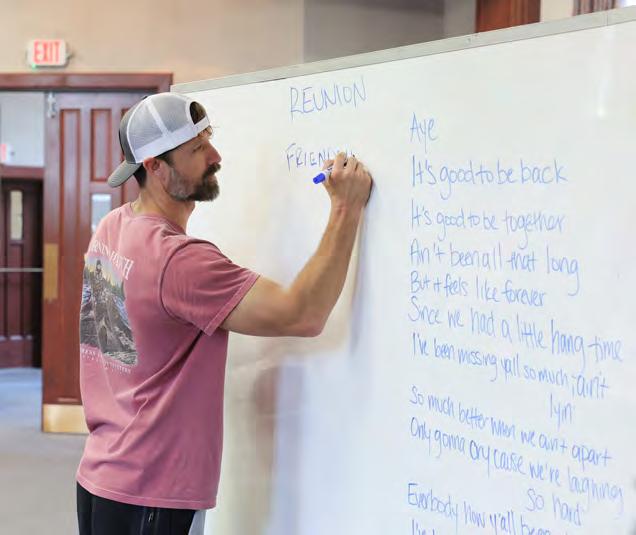 EXIT
REUNION
FRIEND
Aye
It's good to be back
It's good to be together
Ain't been all that long
But it feels like forever
Since we had a little hang time
I've been missing yall so much i ain't
lyin'
So much better when we ain't apart
Only gonna cry cause we're laughing
so hard
Everbody how y'all been
I've